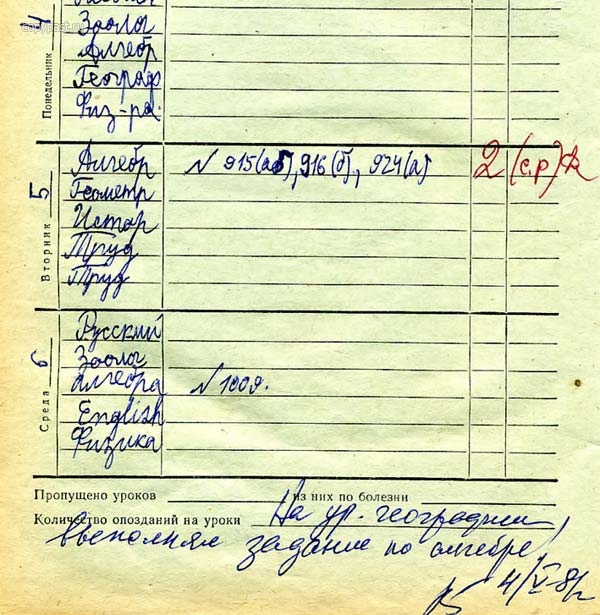 copypast.ru
4
Понедельник
Зоолог
Алгебр
Географ
Физ-ра.
5
Вторник
Алгебр N 915(аб), 916(б), 924(а) 2 (с.р)
Геометр
Истор
Труд
Труд
6
Среда
Русский
Зоолог
Алгебра N 1009.
English
Физика
Пропущено уроков из них по болезни
Количество опозданий на уроки На ур. географии
выполнял задание по алгебре,